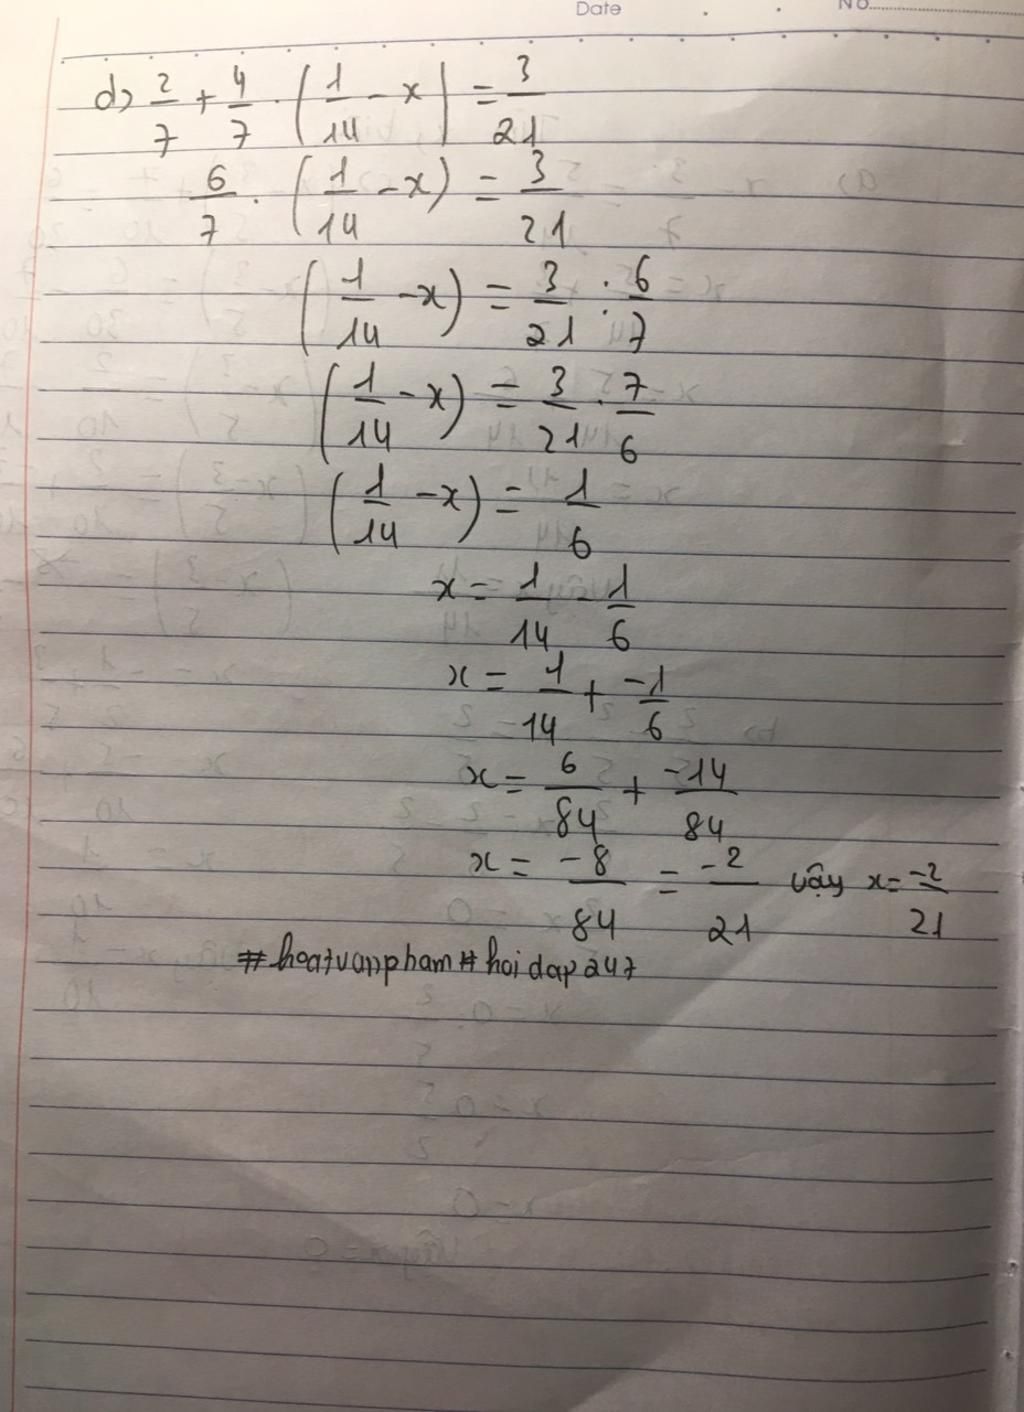 Date No
d) 2/7 + 4/7 . (1/14 - x) = 3/21
6/7 . (1/14 - x) = 3/21
(1/14 - x) = 3/21 : 6/7
(1/14 - x) = 3/21 . 7/6
(1/14 - x) = 1/6
x = 1/14 - 1/6
x = 1/14 + -1/6
x = 6/84 + -14/84
x = -8/84 = -2/21 vậy x = -2/21
#hoatuvanpham#hoidap247